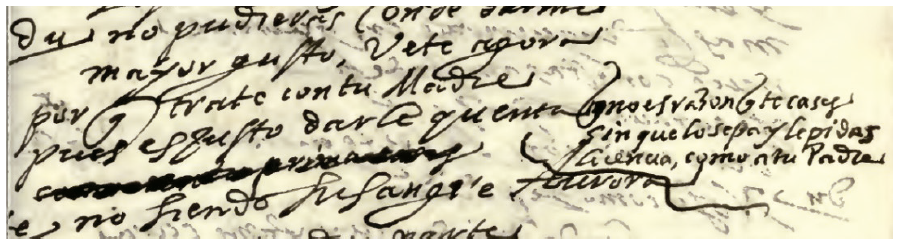 du no pudieras Conde darme
mayor gusto, Vete agora
por q trate con tu Madre
pues es justo darle quenta
q no es razon q te cases
sin que lo sepa y le pidas
licencia, como a tu Padre
no siendo su sangre Aurora
parte